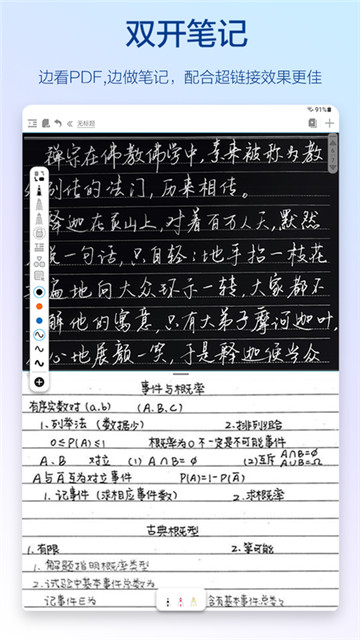 双开笔记
边看PDF,边做笔记，配合超链接效果更佳
91%
无标题
禅宗在佛教佛学中,素来被称为教
别传的法门,历来相传。
释迦在灵山上,对着百万人天,默然
一句话,只自轻地手拈一枝花
遍地向大众环示一转,大家都不
解他的寓意,只有大弟子摩诃迦叶,
心地展颜一笑,于是释迦便当众
事件与概率
有序实数对 (a.b) (A.B.C)
1.列举法 (数据少) 2.排列组合
0≤P(A)≤1 概率为0不一定是不可能事件
A、B 对立 (1) A∩B=∅ (2)互斥 A∩B=∅
A∪B=Ω
A与Ā互为对立事件 P(A)=1-P(Ā)
1.记事件 (求相应事件数) 2.求概率
古典概型
1.有限 2.等可能
1.解题指明概率类型
2.试验中基本事件总数为
记事件E为 含有基本事件总数